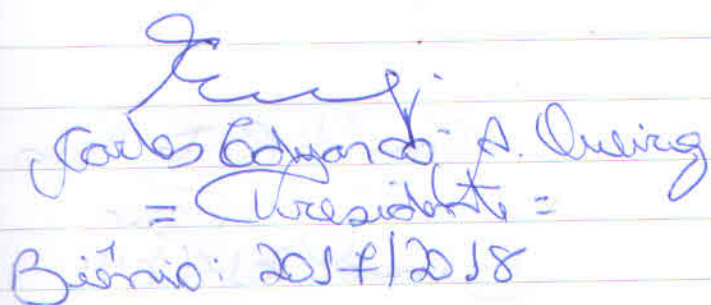 Carlos Eduardo A. Queiroz
= Presidente =
Biênio: 2017/2018